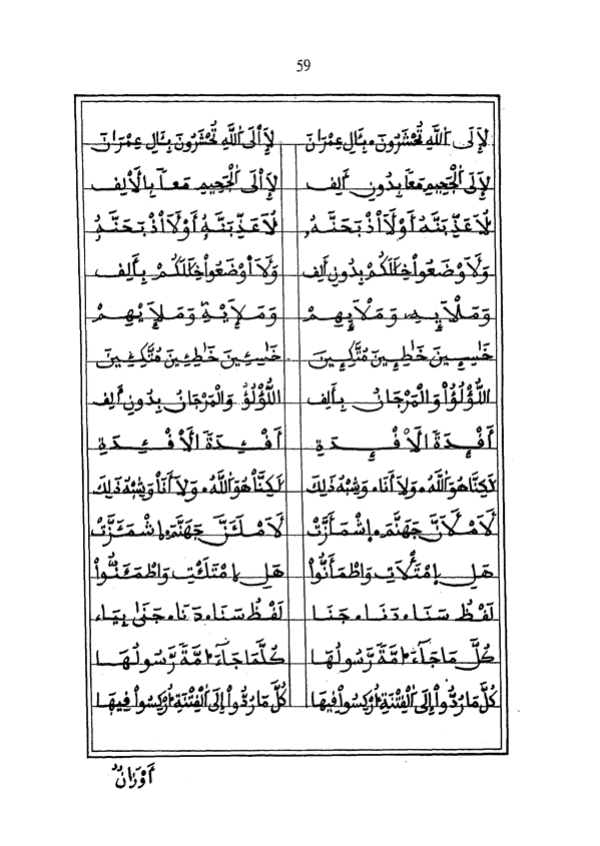 59
لَإِلَى اَللَّهِ تُحْشَرُونَ بِـَالِ عِمْرَانَ لَإِاْلَى اَللَّهِ تُحْشَرُونَ بِـَالِ عِمْرَانَ
لَإِلَى اَلْجَحِيمِ مَعاً بِدُونِ أَلِف لَإِاْلَى اَلْجَحِيمِ مَعاً بِالْأَلِف
لَأُعَذِّبَنَّهُ أَوْ لَأَاْذْبَحَنَّهُ لَأُعَذِّبَنَّهُ أَوْ لَأَاْذْبَحَنَّهُ
وَلَأَوْضَعُواْ خِلَٰلَكُمْ بِدُونِ أَلِف وَلَأَاْوْضَعُواْ خِلَٰلَكُمْ بِأَلِف
وَمَلَإِيْهِ وَمَلَإِيْهِمْ وَمَلَإِيْهِ وَمَلَإِيْهِمْ
خَٰسِـِٕينَ خَٰطِـِٕينَ مُتَّكِـِٕينَ خَٰسِئِينَ خَٰطِئِينَ مُتَّكِئِينَ
اللُّؤْلُؤُاْ وَالْمَرْجَانُ بِأَلِف اللُّؤْلُؤُ وَالْمَرْجَانُ بِدُونِ أَلِف
أَفْـِٕدَةَ الَافْـِٕدَةِ أَفْئِدَةَ الَافْئِدَةِ
لَٰكِنَّاْ هُوَ اَللَّهُ وَلَا أَنَاْ وَشِبْهُ ذَلِكَ لَٰكِنَّاْ هُوَ اَللَّهُ وَلَا أَنَاْ وَشِبْهُ ذَلِكَ
لَأَمْلَأَنَّ جَهَنَّمَ إِشْمَأَزَّتْ لَأَمْلَـَٔنَّ جَهَنَّمَ إِشْمَـَٔزَّتْ
هَلِ إِمْتَلَأْتِ وَاطْمَأَنُّواْ هَلِ إِمْتَلَـْٔتِ وَاطْمَـَٔنُّواْ
لَفْظُ سَنَاء دَنَاء جَنَا لَفْظُ سَنَاء دَنَاء جَنَىٰ بِيَاء
كُلَّ مَا جَآءَ امَّةً رَّسُولُهَا كُلَّمَا جَآءَ امَّةً رَّسُولُهَا
كُلَّ مَا رُدُّواْ إِلَى اَلْفِتْنَةِ أُرْكِسُواْ فِيهَا كُلَّ مَا رُدُّواْ إِلَى اَلْفِتْنَةِ أُرْكِسُواْ فِيهَا
أَوْزَانٌ